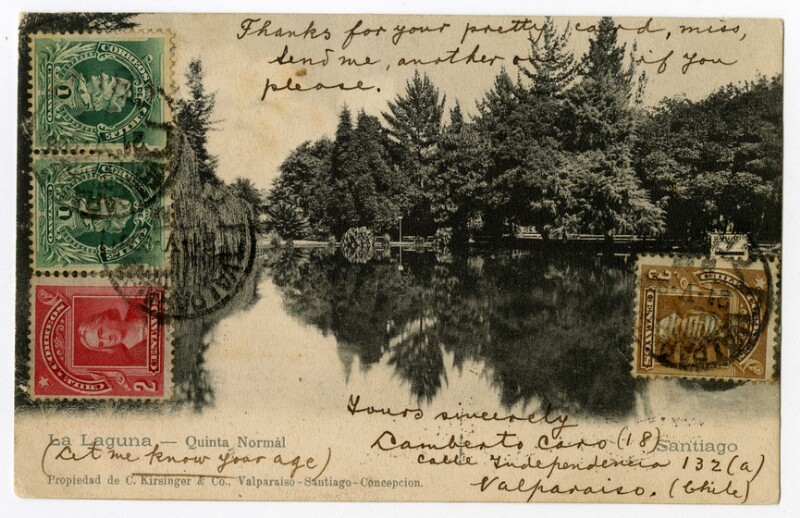 Thanks for your pretty card, miss,
Send me, another if you
please.
CORREOS
UN CENTAVO
CORREOS
UN CENTAVO
CHILE CORREOS
2
VALPARAISO
Yours sincerely
La Laguna — Quinta Normál
Lamberto Caro (18)
Santiago
(Let me know your age)
calle Independencia 132 (a)
Propiedad de C. Kirsinger & Co., Valparaiso-Santiago-Concepcion.
Valparaiso. (Chile)